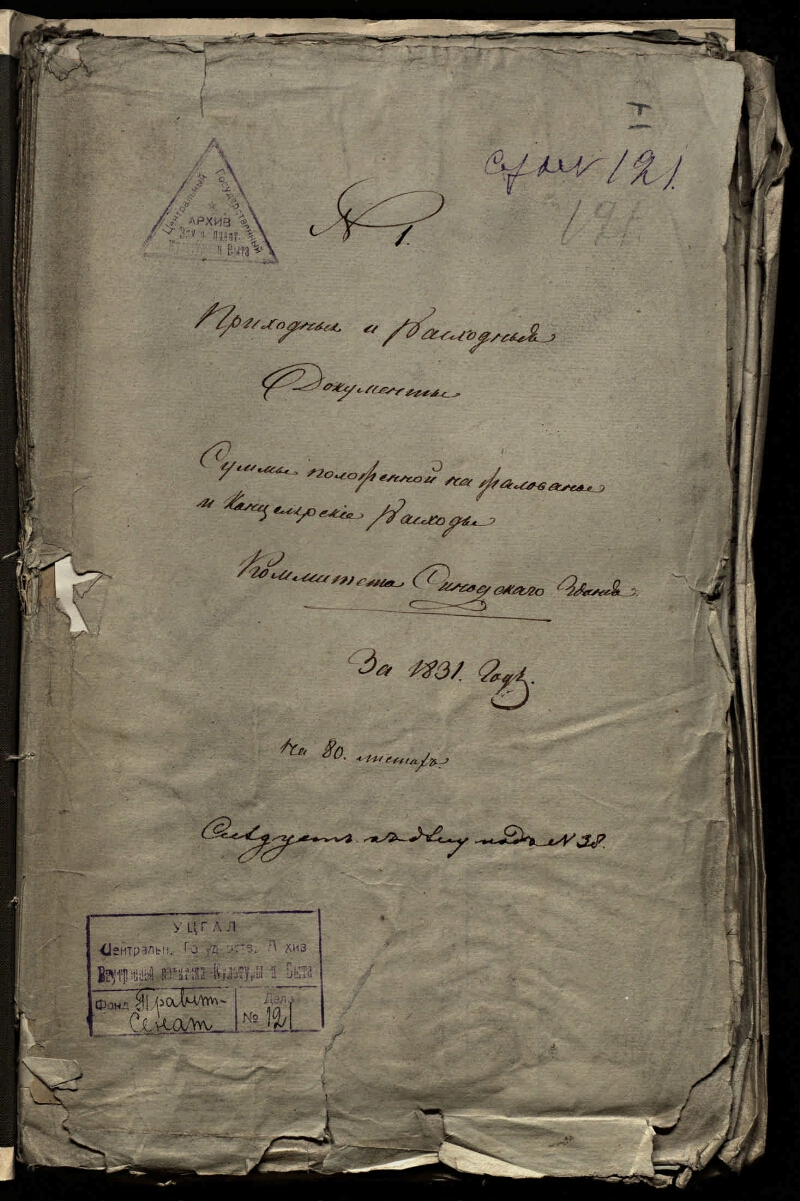 I
121.
121.
N 1.
Центральный Государственный
АРХИВ
Внутр. полит.
Культуры и Быта
Приходные и Расходные
Документы
Суммы положенной на жалованье
и Канцелярскіе Расходы
Коммитета Сенодскаго Зданія
За 1831. Годъ.
На 80. листахъ.
Слѣдуетъ къ дѣлу подъ N 38.
УЦГАЛ
Центральн. Государств. Архив
Внутренней политики Культуры и Быта
Фонд Правит-
Сенат
Дело
№ 121